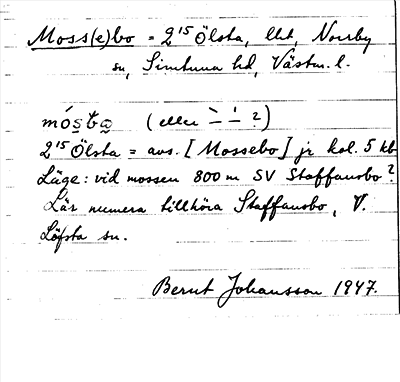 Moss(e)bo = 2¹⁵ Ölsta, lht, Norrby
sn, Simtuna hd, Västm. l.
(eller ` ´ ?)
2¹⁵ Ölsta = avs. [Mossebo] jr kol. 5 kb
Läge: vid mossen 800 m SV Staffansbo?
Lär numera tillhöra Staffansbo, V.
Löfsta sn.
Bernt Johansson 1947.